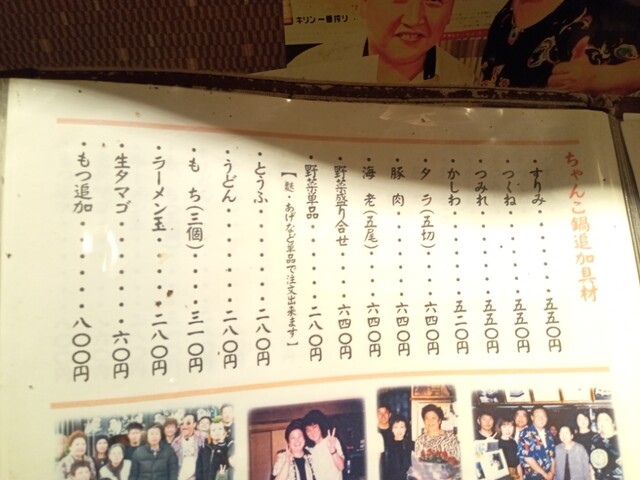 キリン一番搾り
ちゃんこ鍋追加具材
・すりみ・・・・・・五五〇円
・つくね・・・・・・五五〇円
・つみれ・・・・・・五五〇円
・かしわ・・・・・・五二〇円
・タラ(五切)・・・・六四〇円
・豚肉・・・・・・六四〇円
・海老(五尾)・・・・六四〇円
・野菜盛り合せ・・・・六四〇円
・野菜単品・・・・・・二八〇円
【麩・あげなど単品で注文出来ます】
・とうふ・・・・・・二八〇円
・うどん・・・・・・二八〇円
・もち(三個)・・・・三一〇円
・ラーメン玉・・・・・二八〇円
・生タマゴ・・・・・・六〇円
・もつ追加・・・・・・八〇〇円